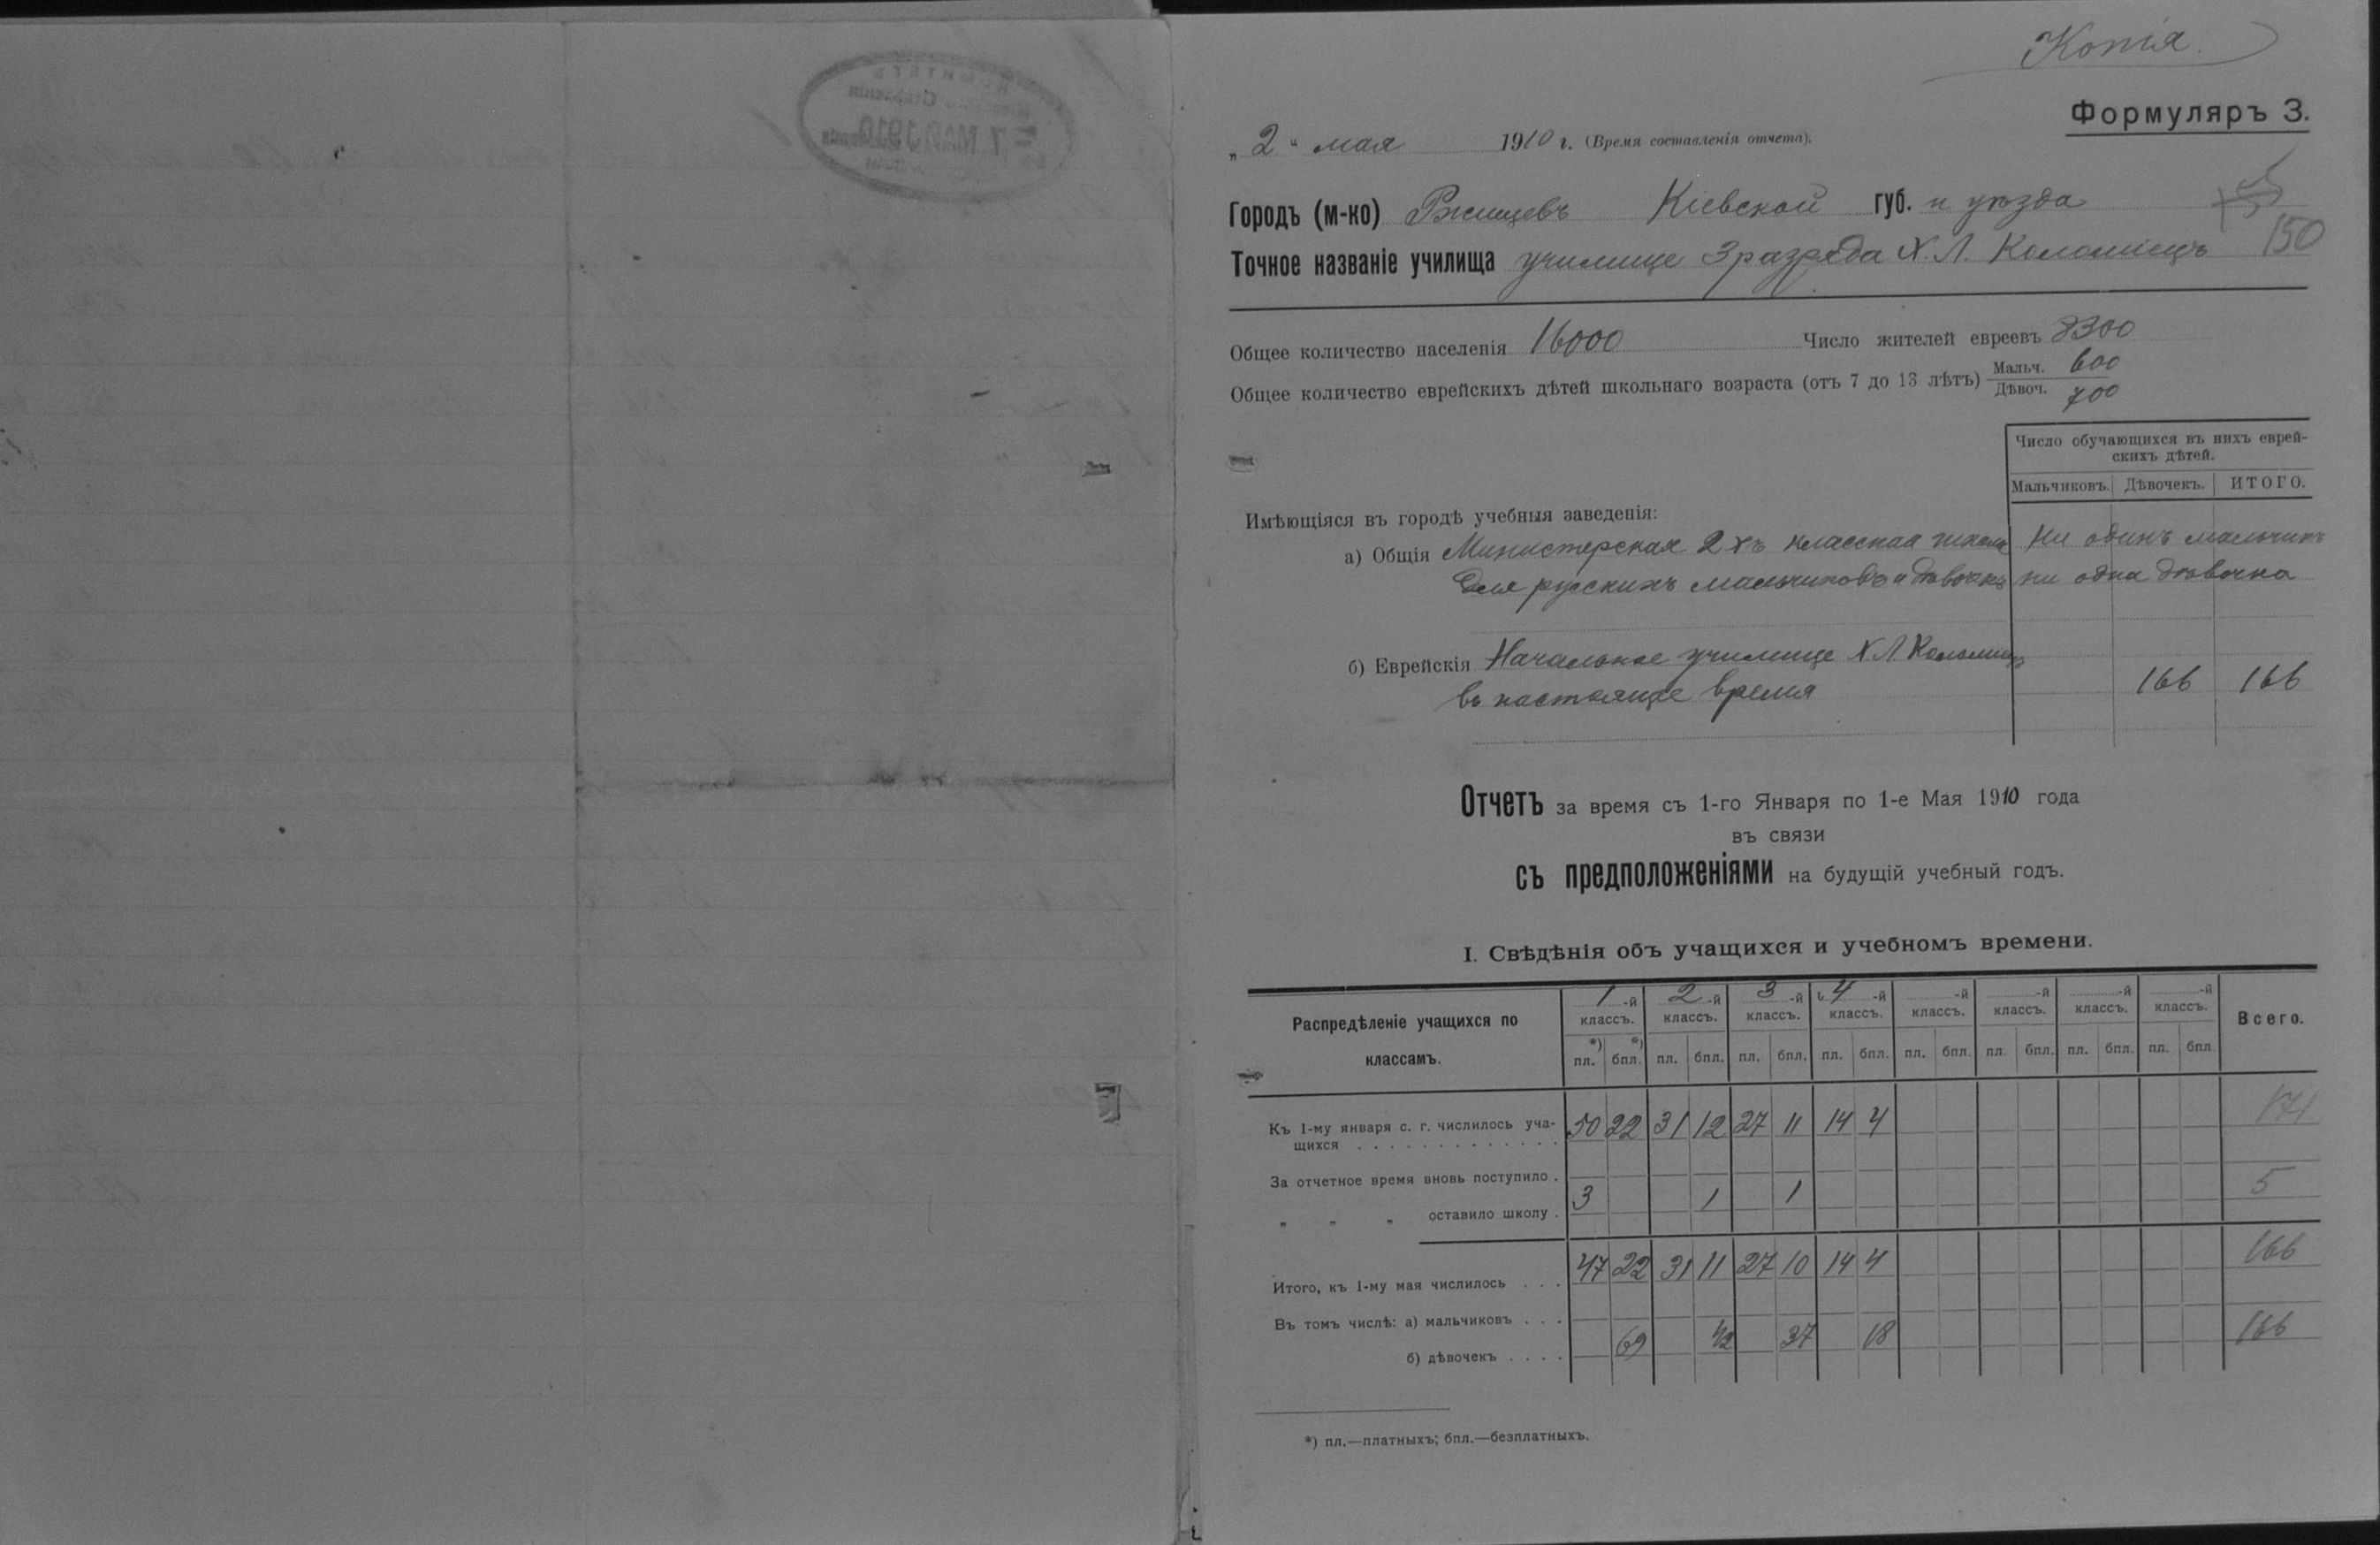 Копія.
Формуляръ 3.
„2“ мая 1910 г. (Время составленія отчета).
Городъ (м-ко) Ржищевъ Кіевской губ. и уѣзда
150
Точное названіе училища училище 3 разряда Х. Л. Коломіецъ
Общее количество населенія 16000 Число жителей евреевъ 8300
Общее количество еврейскихъ дѣтей школьнаго возраста (отъ 7 до 13 лѣтъ) Мальч. 600
Дѣвоч. 700
Число обучающихся въ нихъ еврей-
скихъ дѣтей.
Мальчиковъ. Дѣвочекъ. ИТОГО.
Имѣющіяся въ городѣ учебныя заведенія:
а) Общія Министерская 2хъ классная школа ни одинъ мальчикъ
для русскихъ мальчиковъ и дѣвочекъ ни одна дѣвочка
б) Еврейскія Начальное училище Х Л Коломіецъ
въ настоящее время 166 166
Отчетъ за время съ 1-го Января по 1-е Мая 1910 года
въ связи
съ предположеніями на будущій учебный годъ.
I. Свѣдѣнія объ учащихся и учебномъ времени.
Распредѣленіе учащихся по классамъ. 1-й классъ. 2-й классъ. 3-й классъ. 4-й классъ. -й классъ. -й классъ. -й классъ. -й классъ. Всего.
*) пл. *) бпл. пл. бпл. пл. бпл. пл. бпл. пл. бпл. пл. бпл. пл. бпл. пл. бпл.
Къ 1-му января с. г. числилось уча-
щихся . . . . . . . . . . . . . 50 22 31 12 27 11 14 4 171
За отчетное время вновь поступило .
„ „ „ оставило школу . 3 1 1 5
Итого, къ 1-му мая числилось . . . 47 22 31 11 27 10 14 4 166
Въ томъ числѣ: а) мальчиковъ . . .
б) дѣвочекъ . . . . 69 42 37 18 166
*) пл.—платныхъ; бпл.—безплатныхъ.